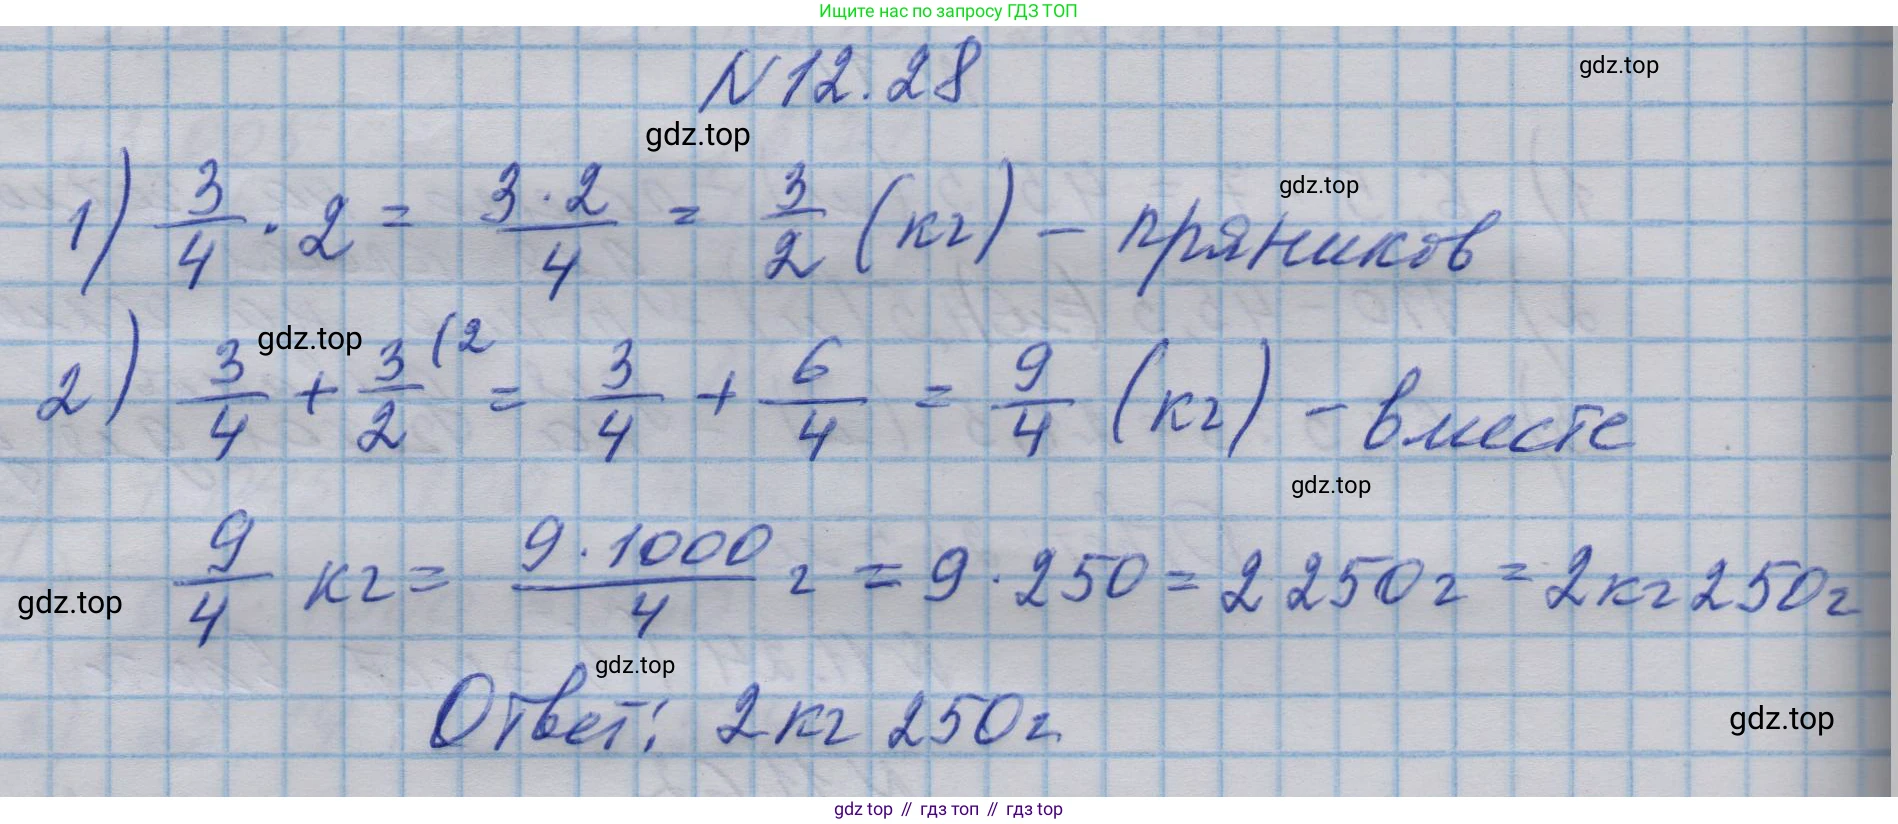 Ищите нас по запросу ГДЗ ТОП
N 12.28
gdz.top
gdz.top
gdz.top
1) 3/4 · 2 = 3 · 2/4 = 3/2 (кг) - пряников
gdz.top
2) 3/4 + 3/2 (2 = 3/4 + 6/4 = 9/4 (кг) - вместе
gdz.top
9/4 кг = 9 · 1000/4 г = 9 · 250 = 2250г = 2кг 250г
gdz.top
gdz.top
Ответ: 2кг 250г.
gdz.top
gdz top // гдз топ // гдз top